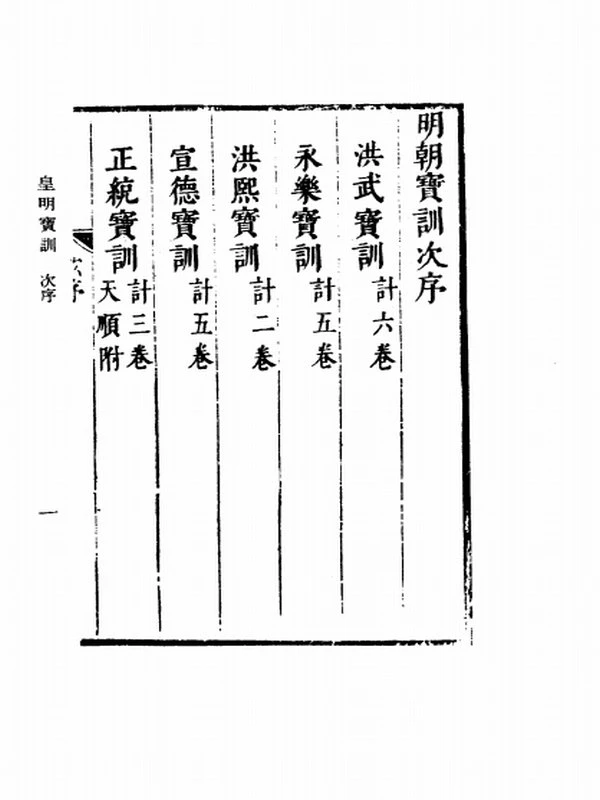 明朝寶訓次序
洪武寶訓計六卷
永樂寶訓計五卷
洪熙寶訓計二卷
宣德寶訓計五卷
正統寶訓計三卷
天順附
次序
皇明寶訓 次序
一